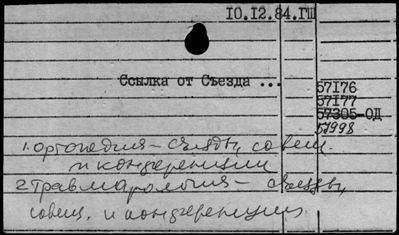 10.12.84.ГШ
Ссылка от Съезда ...
57176
57177
57305-ОД
57998
1. ортопедия – съезды, совещ.
и конференции
2. травматология – съезды,
совещ. и конференции